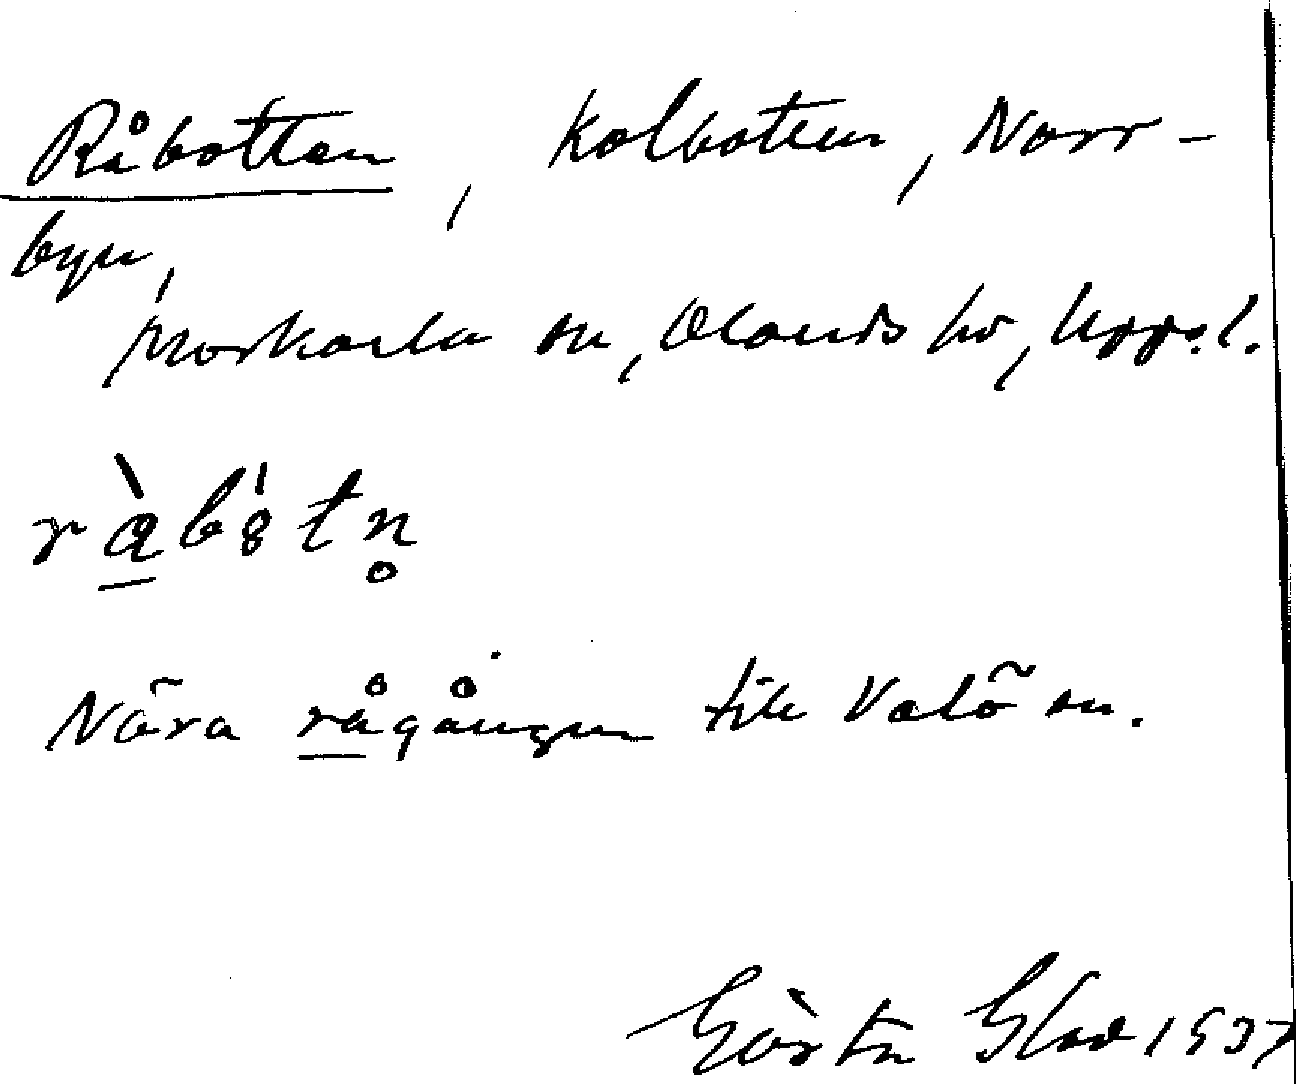 Råbotten, kolbotten, Norr-
byn,
Morkarla sn, Olands hd, Uppl.
ràbòtn̥
Nära rågången till Valö sn.
Gösta 1937